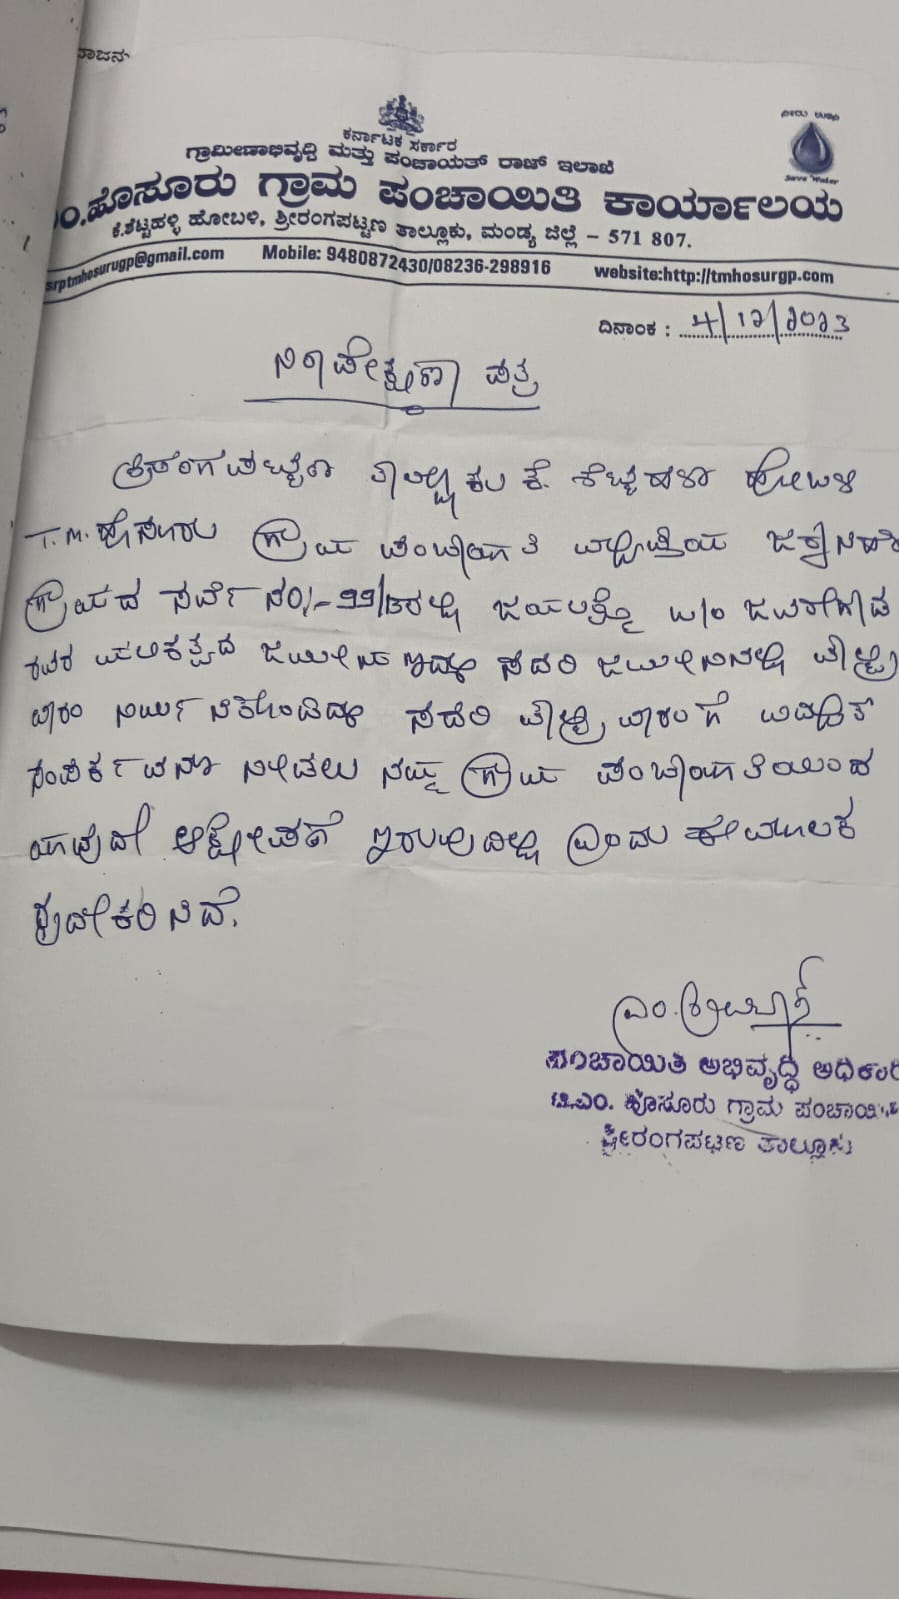 ಕರ್ನಾಟಕ ಸರ್ಕಾರ
ಗ್ರಾಮೀಣಾಭಿವೃದ್ಧಿ ಮತ್ತು ಪಂಚಾಯತ್ ರಾಜ್ ಇಲಾಖೆ
Save Water
ಂ.ಹೊಸೂರು ಗ್ರಾಮ ಪಂಚಾಯಿತಿ ಕಾರ್ಯಾಲಯ
ಕೆ.ಶೆಟ್ಟಹಳ್ಳಿ ಹೋಬಳಿ, ಶ್ರೀರಂಗಪಟ್ಟಣ ತಾಲ್ಲೂಕು, ಮಂಡ್ಯ ಜಿಲ್ಲೆ - 571 807.
srptmhosurugp@gmail.com Mobile: 9480872430/08236-298916 website:http://tmhosurgp.com
ದಿನಾಂಕ : 4/12/2023
ನಿರಾಪೇಕ್ಷಣಾ ಪತ್ರ
ಶ್ರೀರಂಗಪಟ್ಟಣ ತಾಲ್ಲೂಕು ಕೆ. ಶೆಟ್ಟಹಳ್ಳಿ ಹೋಬಳಿ
T.M.ಹೊಸೂರು ಗ್ರಾಮ ಪಂಚಾಯಿತಿ ವ್ಯಾಪ್ತಿಯ
ಗ್ರಾಮದ ಸರ್ವೆ ನಂ/- 99/ ರಲ್ಲಿ
ರವರ ಮಾಲಿಕತ್ವದ ಜಮೀನು ಇದ್ದು ಸದರಿ ಜಮೀನಿನಲ್ಲಿ ಪೌಲ್ಟ್ರಿ
ಫಾರಂ ನಿರ್ಮಿಸಿಕೊಂಡಿದ್ದು ಸದರಿ ಪೌಲ್ಟ್ರಿ ಫಾರಂಗೆ ವಿದ್ಯುತ್
ಸಂಪರ್ಕವನ್ನು ನೀಡಲು ನಮ್ಮ ಗ್ರಾಮ ಪಂಚಾಯಿತಿಯಿಂದ
ಯಾವುದೇ ಆಕ್ಷೇಪಣೆ ಇರುವುದಿಲ್ಲ ಎಂದು ಈ ಮೂಲಕ
ದೃಢೀಕರಿಸಿದೆ.
ಪಂಚಾಯಿತಿ ಅಭಿವೃದ್ಧಿ ಅಧಿಕಾರಿ
ಟಿ.ಎಂ. ಹೊಸೂರು ಗ್ರಾಮ ಪಂಚಾಯಿತಿ
ಶ್ರೀರಂಗಪಟ್ಟಣ ತಾಲ್ಲೂಕು